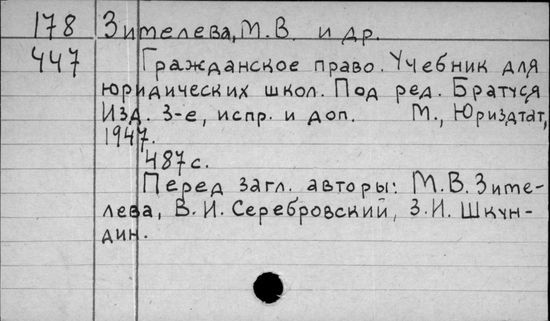 178 Зителева, М.В. и др.
447 Гражданское право. Учебник для
юридических школ. Под ред. Братуся
Изд. 3-е, испр. и доп. М., Юриздтат,
1947.
487с.
Перед загл. авторы: М.В. Зите-
лева, В.И. Серебровский, З.И. Шкун-
дин.